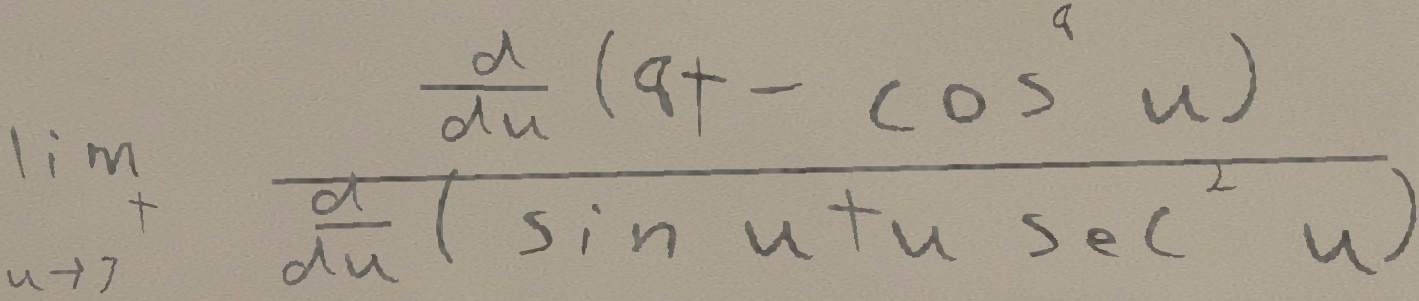 \lim_{u \to 7^+} \frac{\frac{d}{du}(9t - \cos^9 u)}{\frac{d}{du}(\sin u + u \sec^2 u)}